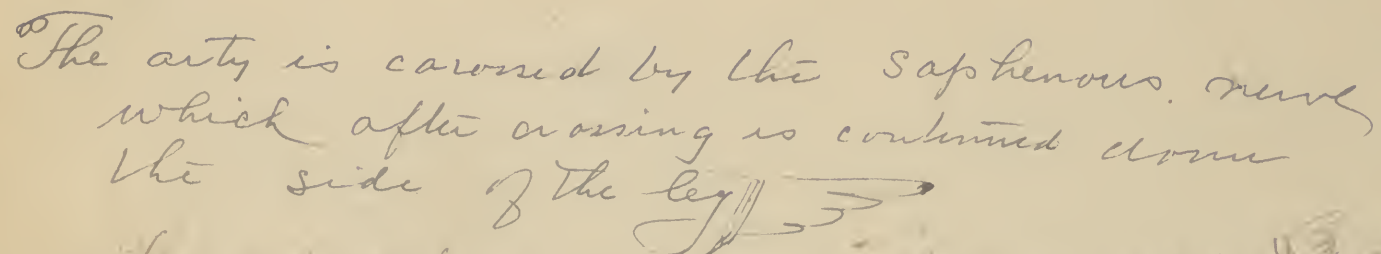 The arty is carossed by the Saphenous nerve
which after crossing is continued down
the side of the leg